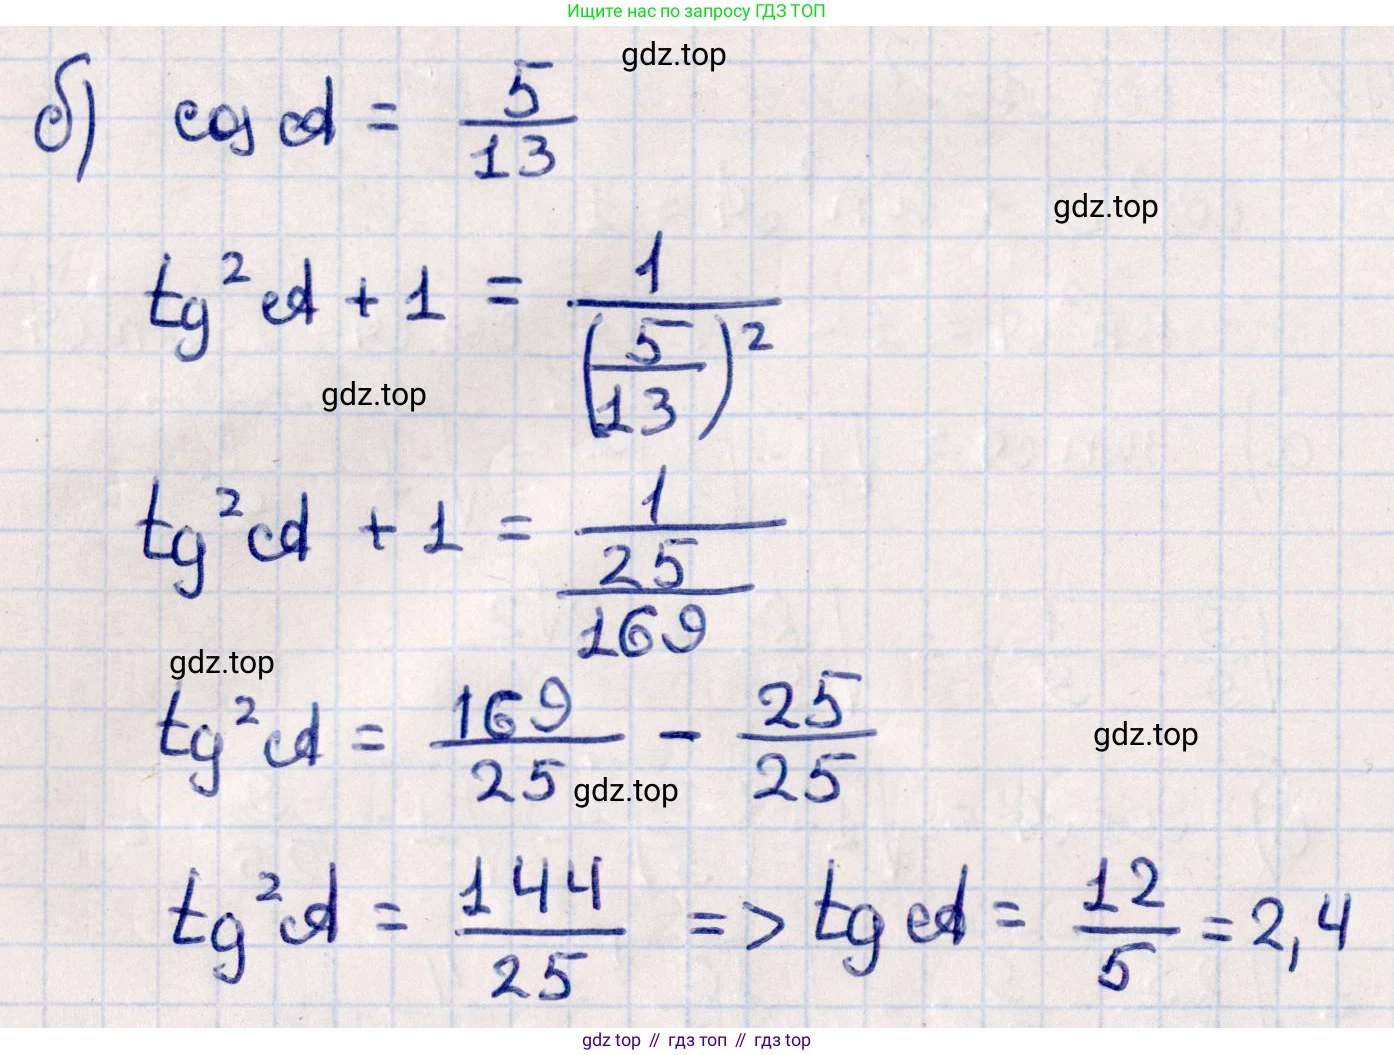 Ищите нас по запросу ГДЗ ТОП
gdz.top
б) cos α = 5/13
gdz.top
tg²α + 1 = 1/(5/13)²
gdz.top
tg²α + 1 = 1/(25/169)
gdz.top
tg²α = 169/25 - 25/25
gdz.top
gdz.top
tg²α = 144/25 => tg α = 12/5 = 2,4
gdz top // гдз топ // gdz top